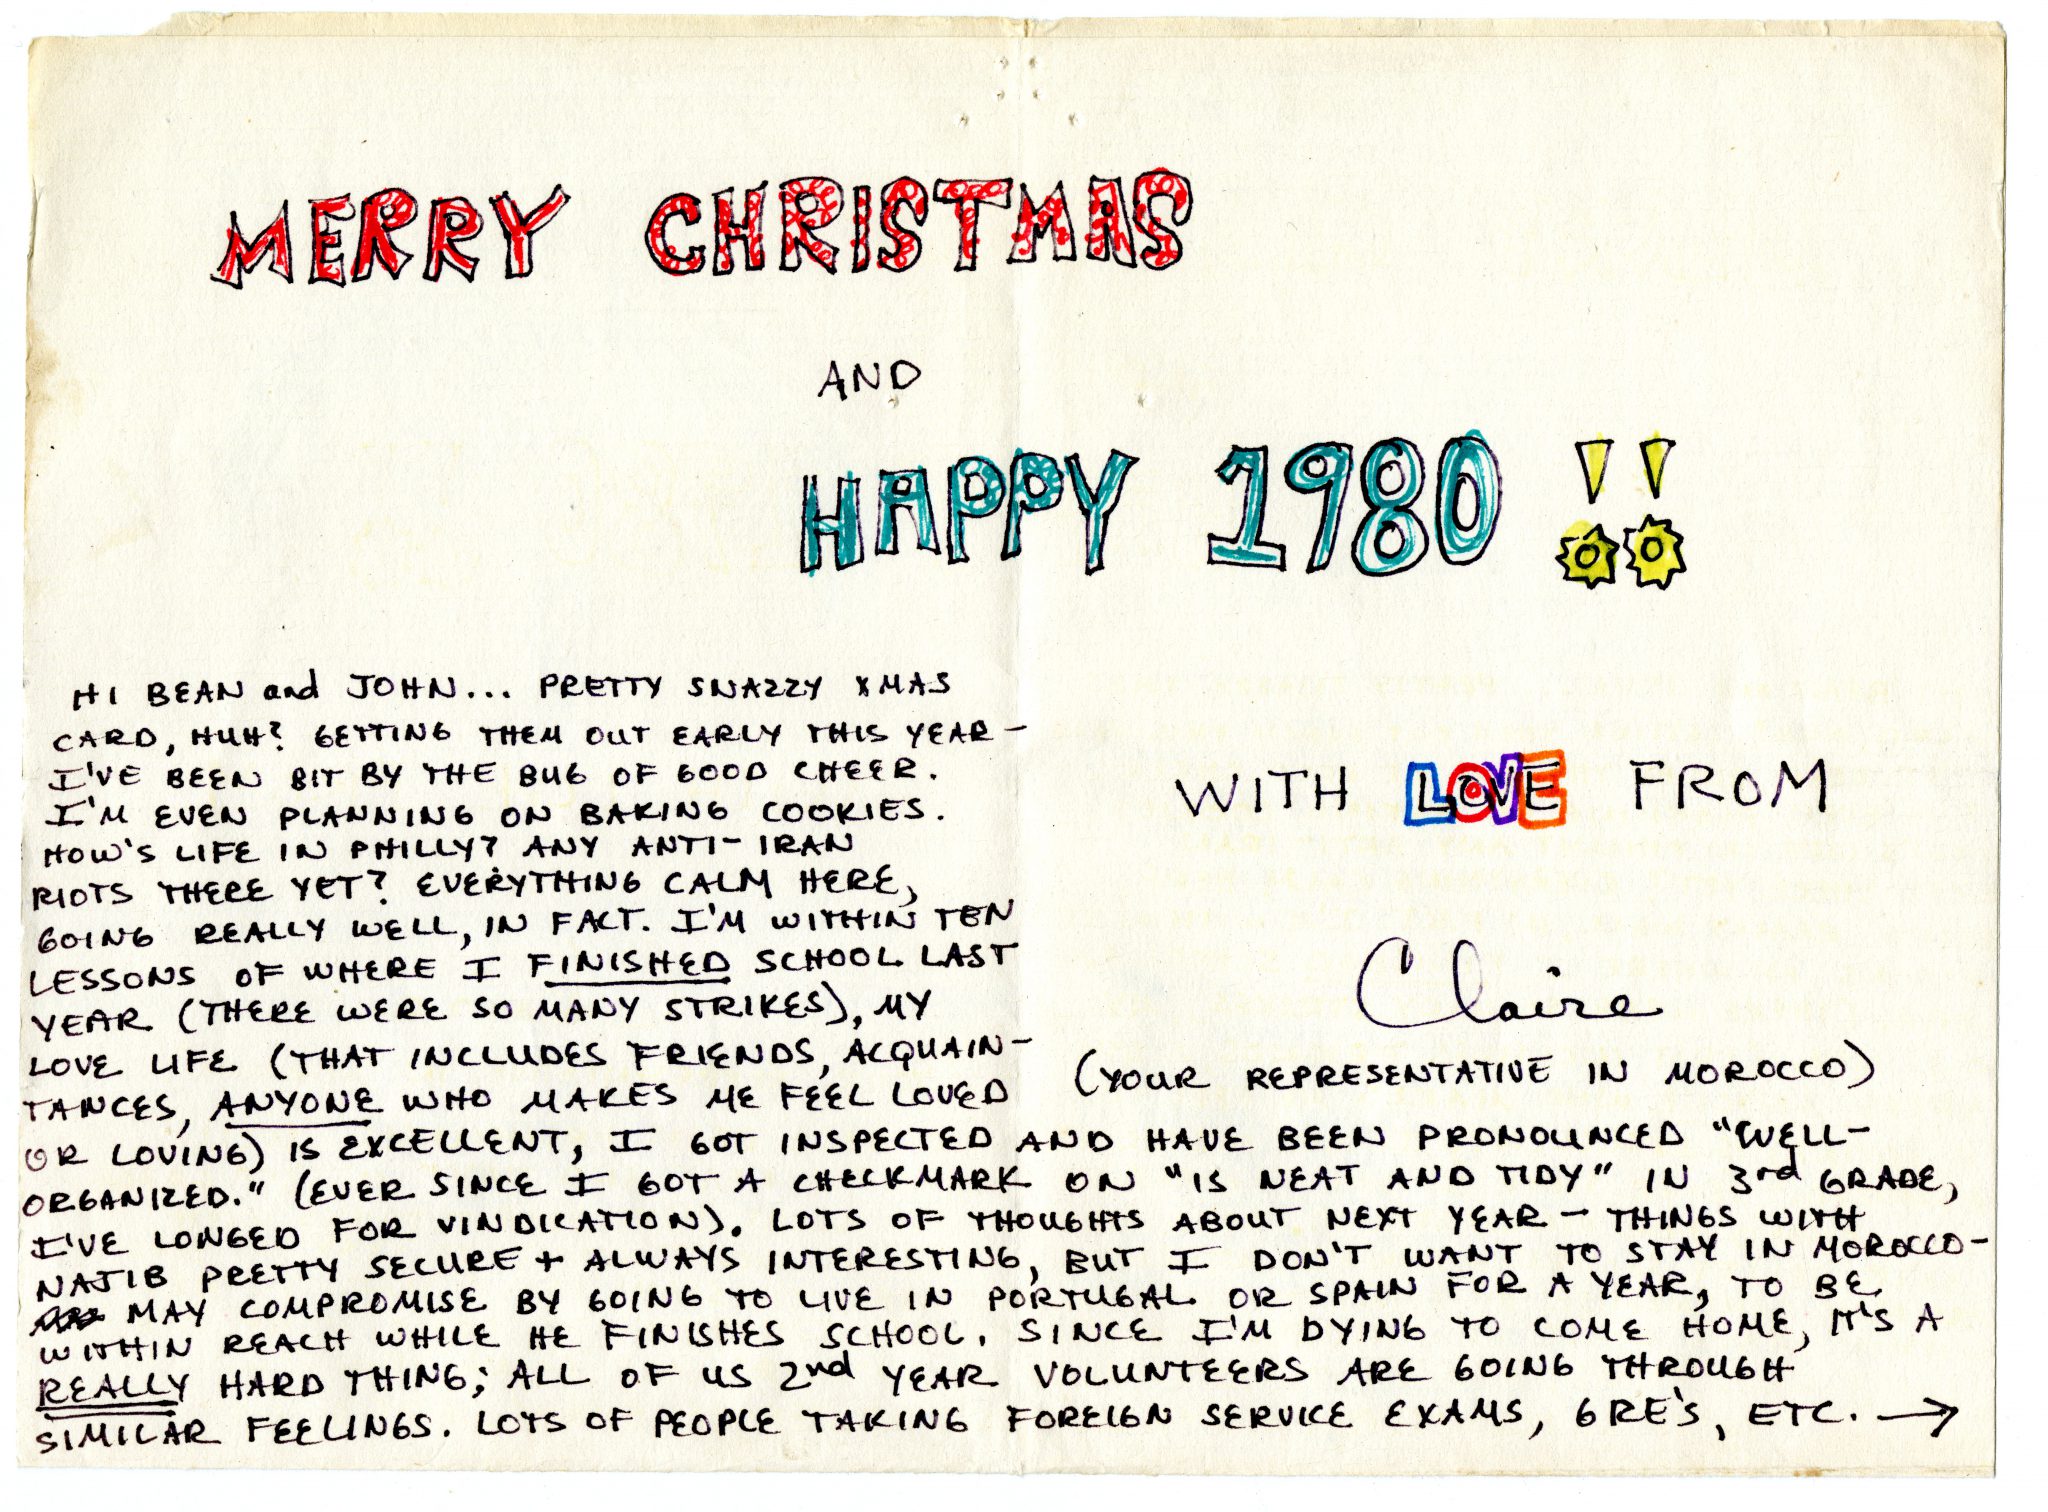 MERRY CHRISTMAS
AND
HAPPY 1980 !!
HI BEAN and JOHN... PRETTY SNAZZY XMAS
CARD, HUH? GETTING THEM OUT EARLY THIS YEAR -
I'VE BEEN BIT BY THE BUG OF GOOD CHEER.
I'M EVEN PLANNING ON BAKING COOKIES.
HOW'S LIFE IN PHILLY? ANY ANTI-IRAN
RIOTS THERE YET? EVERYTHING CALM HERE,
GOING REALLY WELL, IN FACT. I'M WITHIN TEN
LESSONS OF WHERE I FINISHED SCHOOL LAST
YEAR (THERE WERE SO MANY STRIKES), MY
LOVE LIFE (THAT INCLUDES FRIENDS, ACQUAIN-
TANCES, ANYONE WHO MAKES ME FEEL LOVED
WITH LOVE FROM
Claire
(YOUR REPRESENTATIVE IN MOROCCO)
OR LOVING) IS EXCELLENT, I GOT INSPECTED AND HAVE BEEN PRONOUNCED "WELL-
ORGANIZED." (EVER SINCE I GOT A CHECKMARK ON "IS NEAT AND TIDY" IN 3rd GRADE,
I'VE LONGED FOR VINDICATION). LOTS OF THOUGHTS ABOUT NEXT YEAR - THINGS WITH
NAJIB PRETTY SECURE + ALWAYS INTERESTING, BUT I DON'T WANT TO STAY IN MOROCCO -
MAY COMPROMISE BY GOING TO LIVE IN PORTUGAL OR SPAIN FOR A YEAR, TO BE
WITHIN REACH WHILE HE FINISHES SCHOOL. SINCE I'M DYING TO COME HOME, IT'S A
REALLY HARD THING; ALL OF US 2nd YEAR VOLUNTEERS ARE GOING THROUGH
SIMILAR FEELINGS. LOTS OF PEOPLE TAKING FOREIGN SERVICE EXAMS, GRE'S, ETC. →